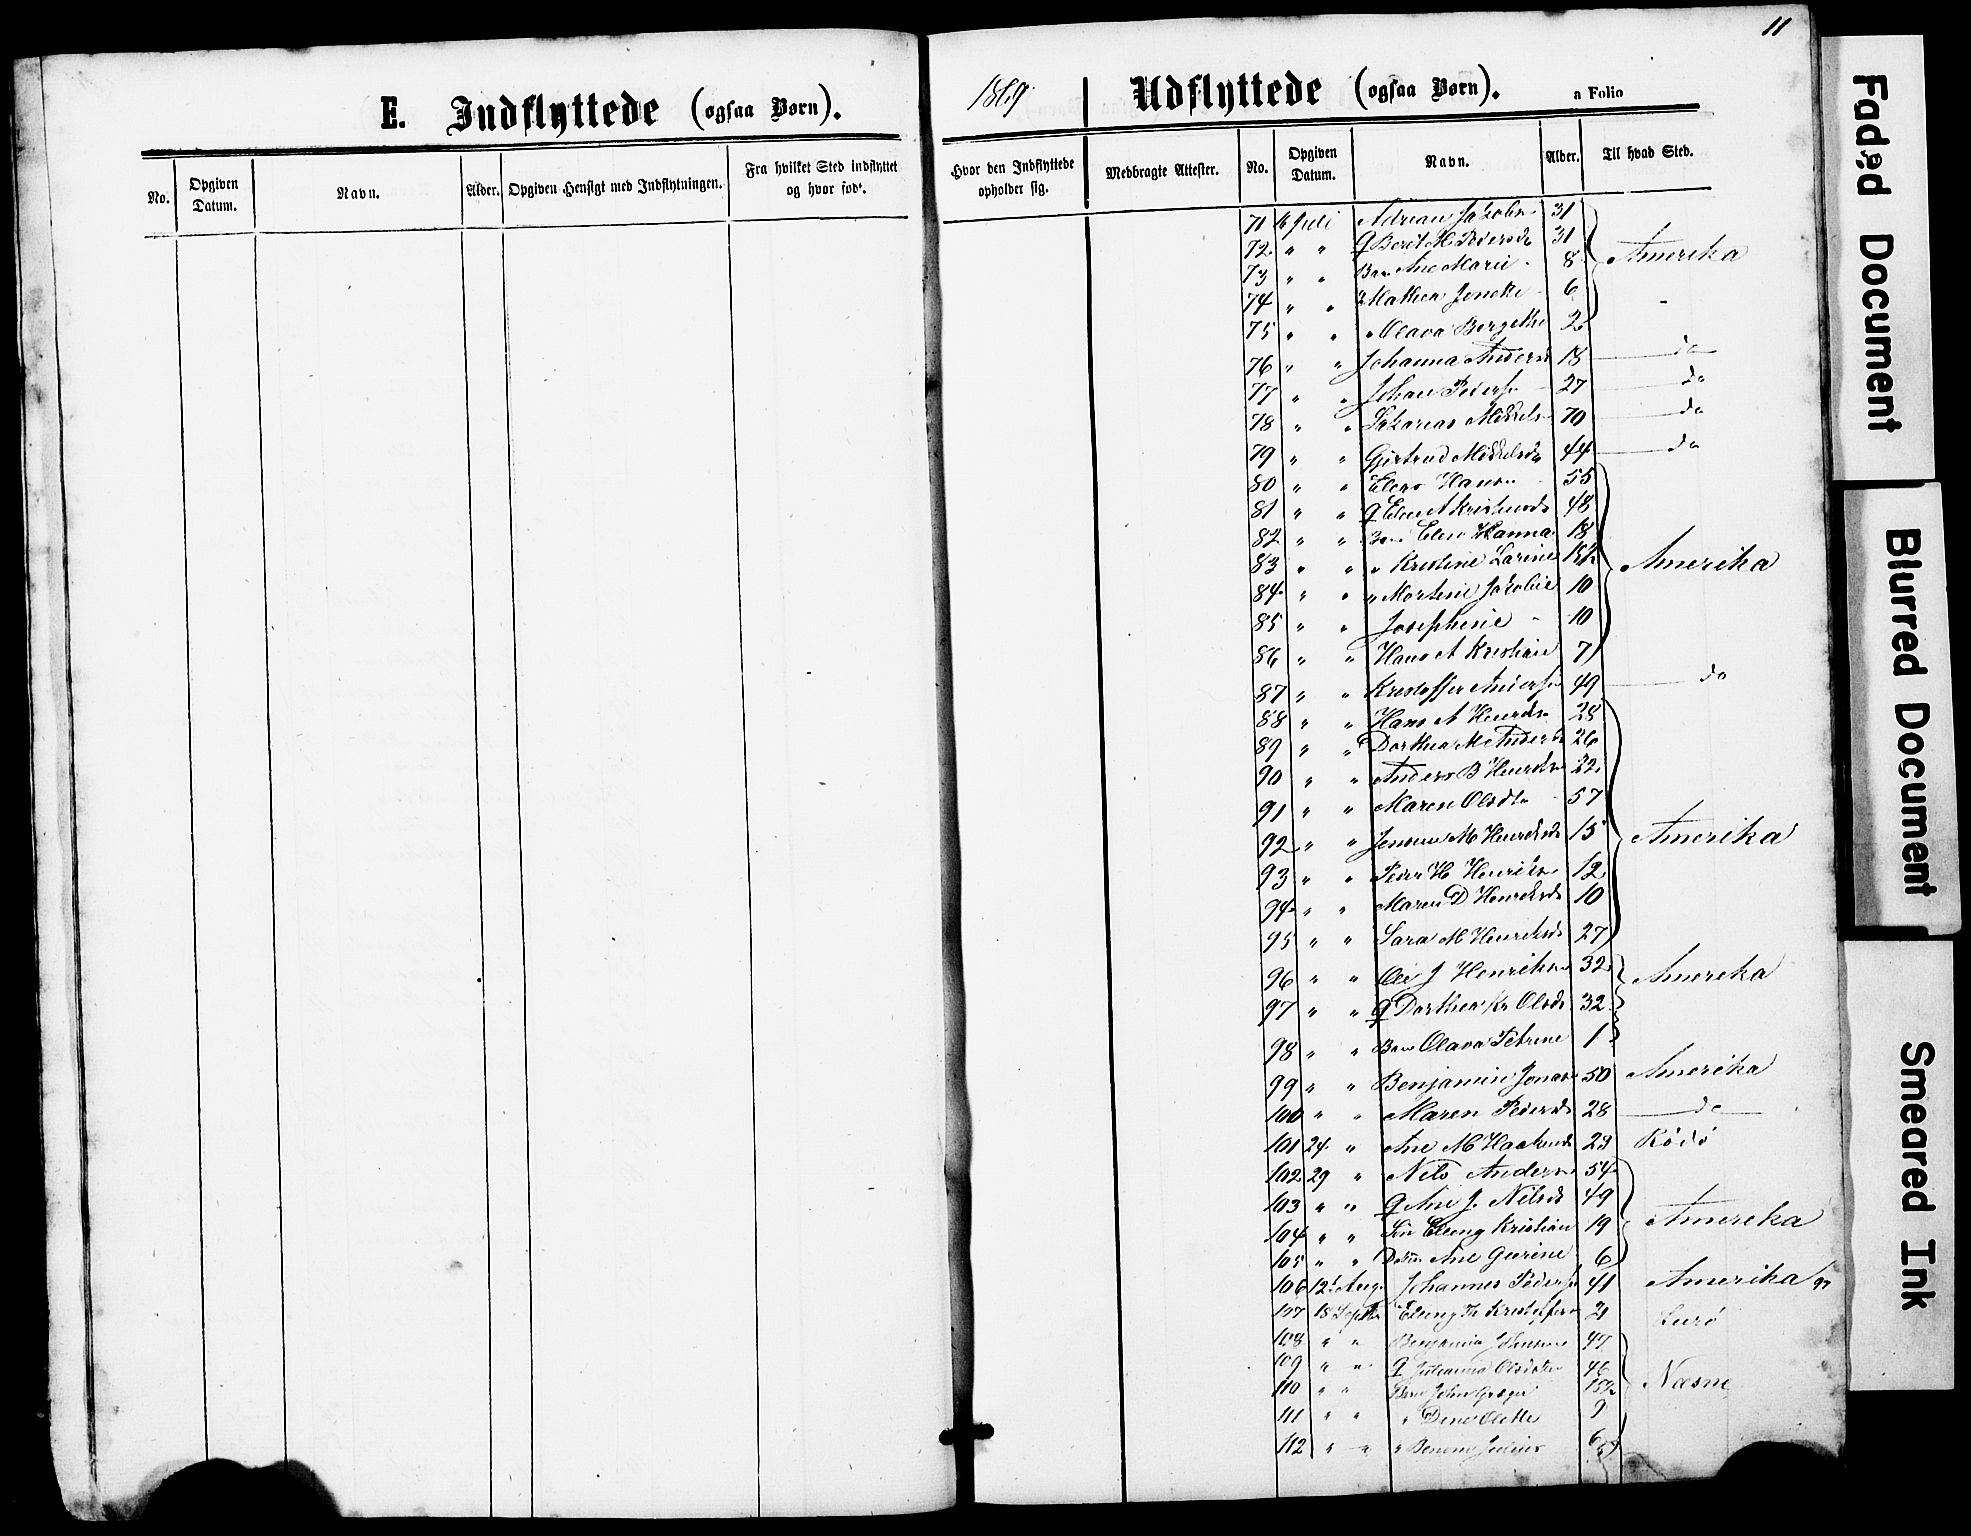 11
E. Indflyttede (ogsaa Børn).
1869
Udflyttede (ogsaa Børn). a Folio
No. Opgiven Datum. Navn. Alder. Opgiven Hensigt med Indflytningen. Fra hvilket Sted indflyttet og hvor født. Hvor den Indflyttede opholder sig. Medbragte Attester. No. Opgiven Datum. Navn. Alder. Til hvad Sted.
71 16 Juli Adrian Jakobs 31
72 " " Q Berit M Pedersd 31 Amerika
73 " " Barn Ane Marie 8
74 " " " Mathea 6
75 " " " Olava Bergethe 2
76 " " Johanna Andersd 18 do
77 " " Johan Peders 27 do
78 " " Zakarias Mikkels 70 do
79 " " Gjertrud Mikkelsd 44 do
80 " " Elias Hans 55
81 " " Q Elen A Kristensd 48
82 " " Barn Elen Hanna 18
83 " " " Kristine Larine 15½ Amerika
84 " " " Mortine Jakobie 10
85 " " Josephine 10
86 " " Hans A Kristian 7
87 " " Kristoffer Anders 49 do
88 " " Hans A Henriks 28
89 " " Dorthea M Andersd 26
90 " " Anders B Henriks 22
91 " " Maren Olsdtr 57
92 " " M Henriksd 15 Amerika
93 " " Peder H Henriks 12
94 " " Maren D Henriksd 10
95 " " Sara M Henriksd 27
96 " " Ole J Henriks 32 Amerika
97 " " Q Dorthea Kr Olsd 32
98 " " Barn Olava Petrine 1
99 " " Benjamin Jonas 50 Amerika
100 " " Maren Pedersd 28 do
101 24 " Ane M Haakonsd 29 Rødø
102 29 " Nils Anders 54
103 " " Q Ane J. Nilsd 49
104 " " Søn Eleng Kristian 19 Amerika
105 " " Ane Geerine 6
106 12 Aug. Johannes Peders 41 Amerika
107 18 Septbr Eleng Kristoffers 21 Lurø
108 " " Benjamin Johnsen 47
109 " " Q Julianna Olsdatter 46
110 " " Barn John Greger 15½ Næsne
111 " " " Dine Olette 9
112 " " " Julius 6